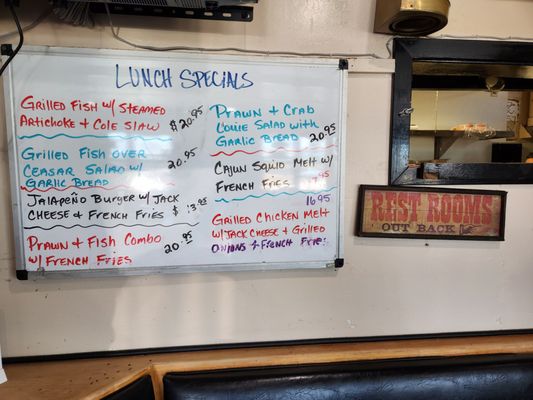 LUNCH SPECIALS
GRILLED FISH W/ STEAMED
ARTICHOKE & COLE SLAW $20.95
GRILLED FISH OVER
CEASAR SALAD W/ 20.95
GARLIC BREAD
JALAPEÑO BURGER W/ JACK
CHEESE & FRENCH FRIES $13.95
PRAWN & FISH COMBO
W/ FRENCH FRIES 20.95
PRAWN & CRAB
LOUIE SALAD WITH
GARLIC BREAD 20.95
CAJUN SQUID MELT W/
FRENCH FRIES
16.95
GRILLED CHICKEN MELT
W/ JACK CHEESE & GRILLED
ONIONS & FRENCH FRIES
REST ROOMS
OUT BACK